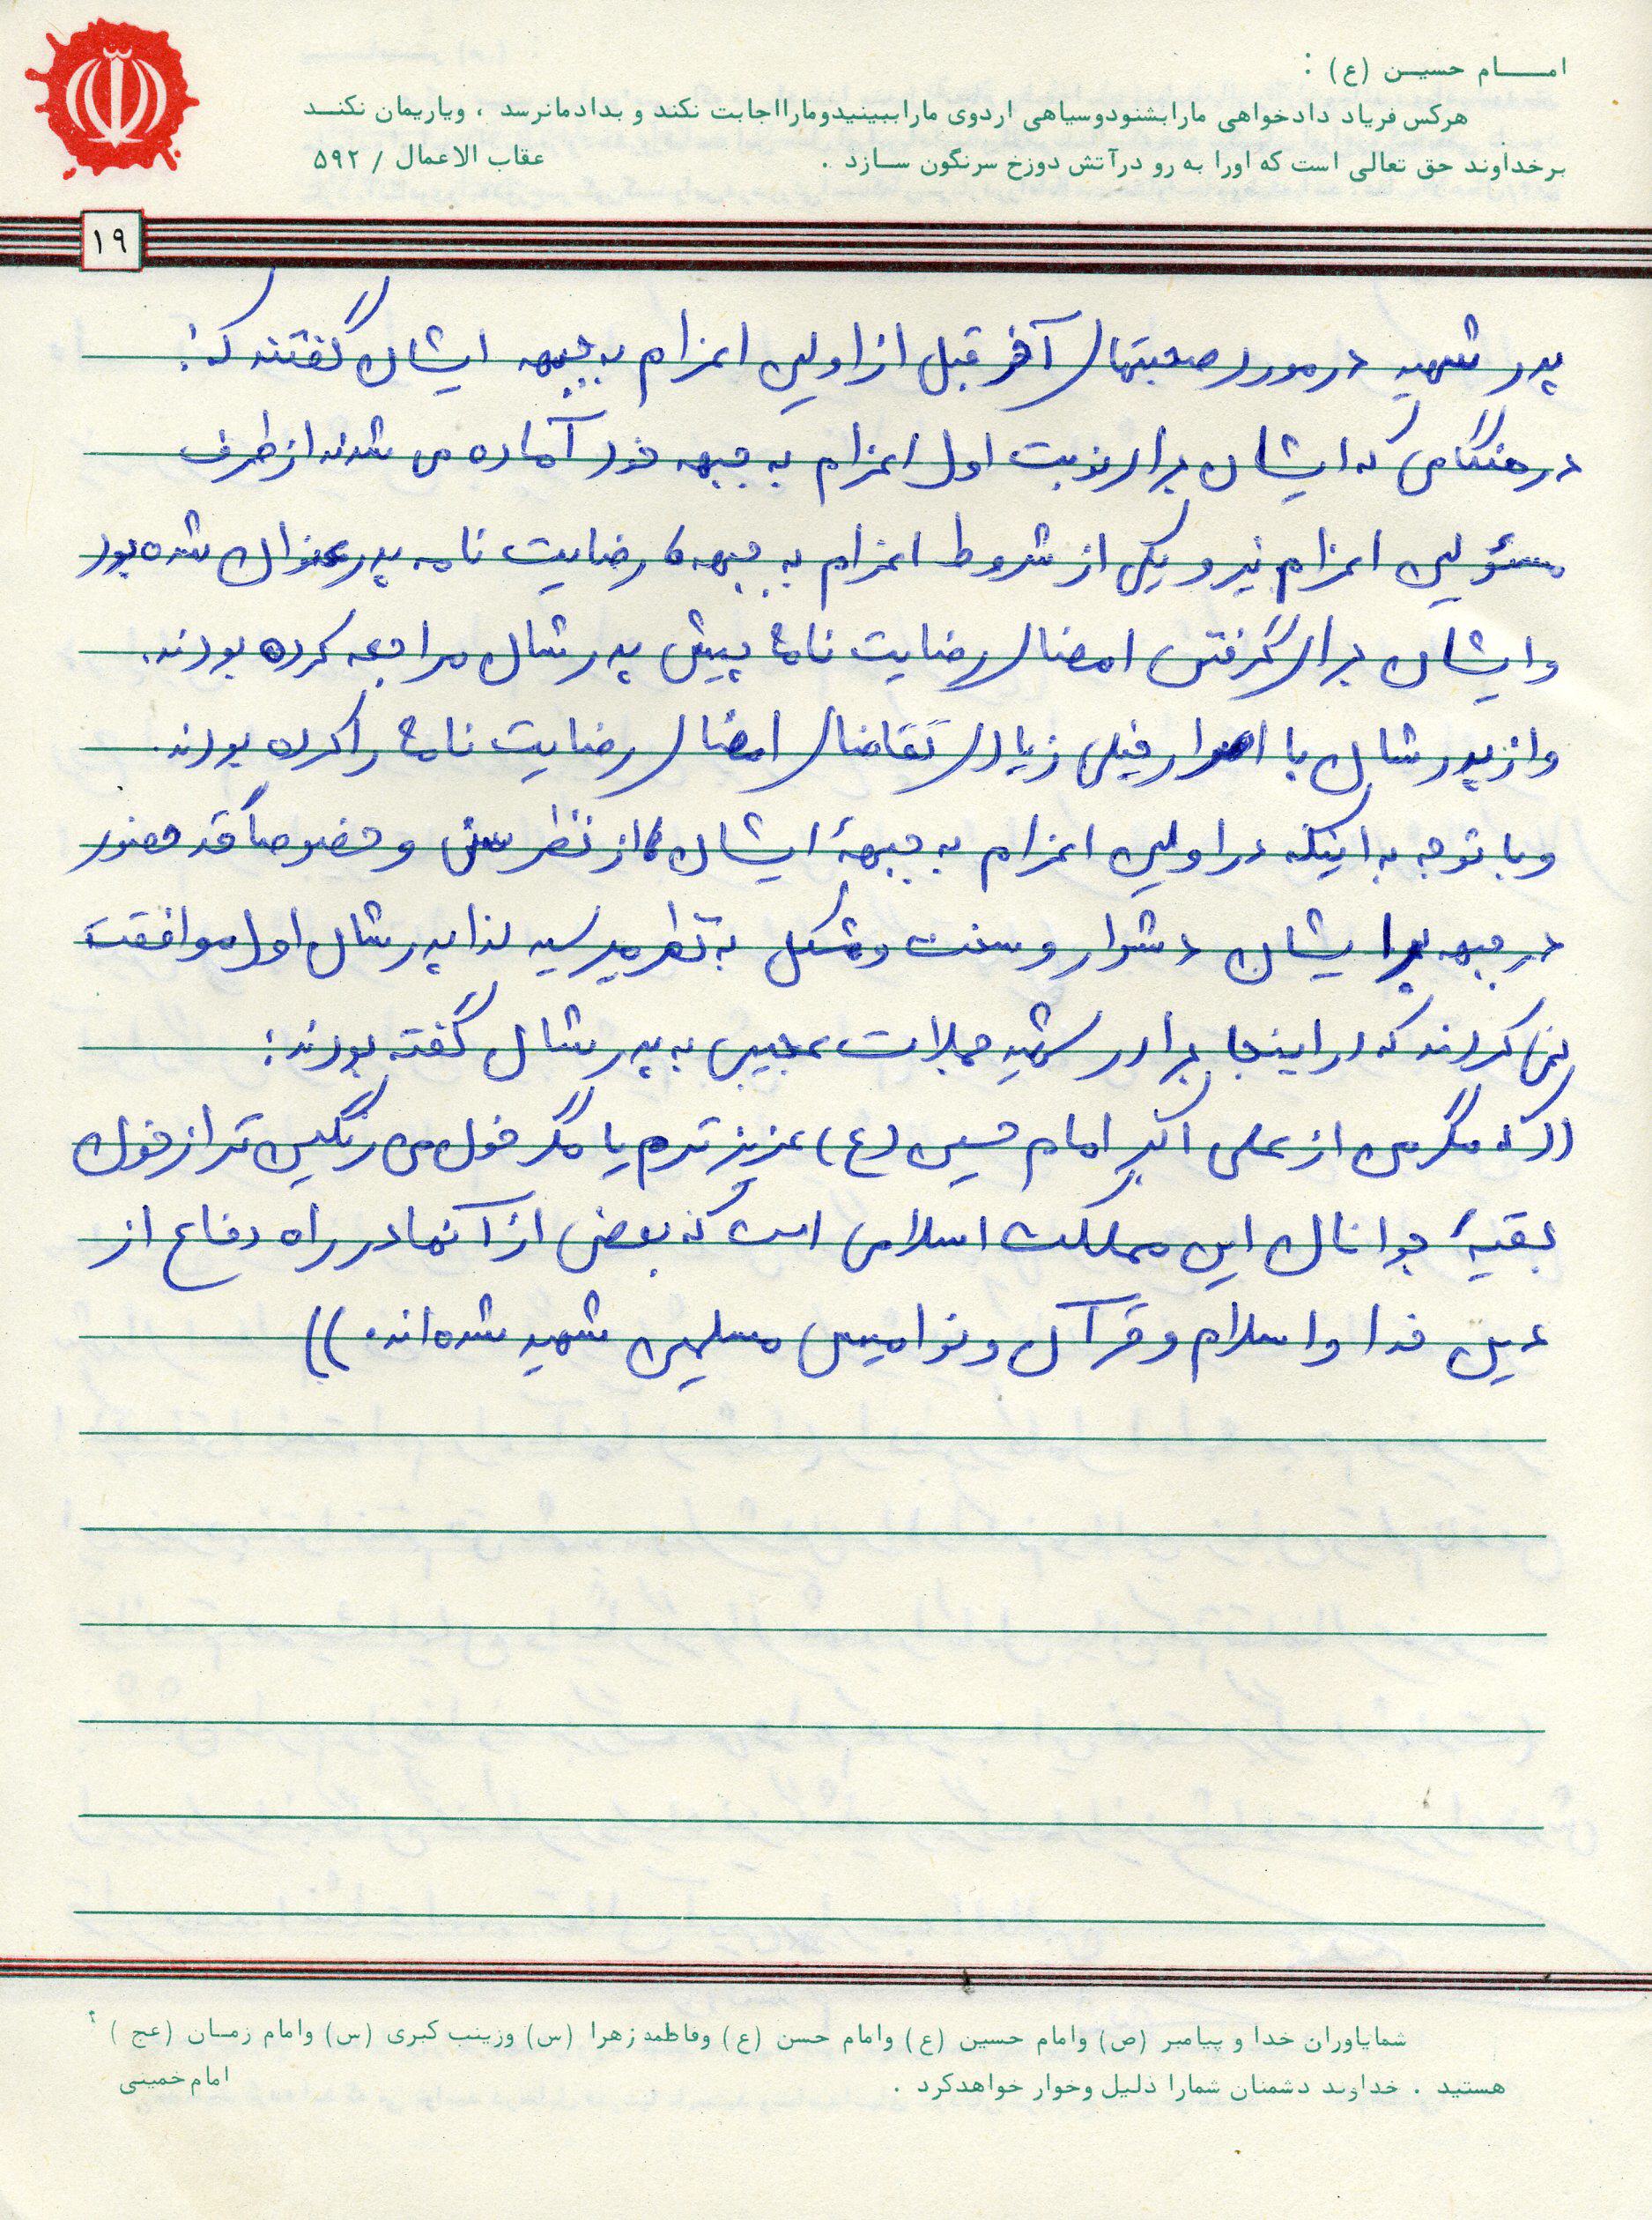 امـــام حسیــن (ع) :
هرکس فریاد دادخواهی مارابشنودوسیاهی اردوی مارابینیدوماراااجابت نکند و بدادمانرسد ، ویاریمان نکنــد
برخداوند حق تعالی است که اورا به رو درآتش دوزخ سرنگون ســازد . عقاب الاعمال / ۵۹۲
۱۹
پدر شهید در مورد صحبتهای آخر قبل از اولین اعزام به جبهه ایشان گفتند که:
در هنگامی که ایشان برای نوبت اول اعزام به جبهه خود آماده می شدند از طرف
مسئولین اعزام نیرو یکی از شروط اعزام به جبهه، رضایت نامه پدر عنوان شده بود
و ایشان برای گرفتن امضای رضایت نامه پیش پدرشان مراجعه کرده بودند.
و از پدرشان با اصرار خیلی زیادی تقاضای امضای رضایت نامه را کرده بودند.
و با توجه به اینکه در اولین اعزام به جبههٔ ایشان از نظر سنی و خصوصاً قد حضور
در جبهه برا یشان دشوار و سخت و مشکل به نظر میرسید لذا پدرشان اول موافقت
نمی کردند که در اینجا برادر شهید جملات عجیبی به پدرشان گفته بودند:
((که مگر من از علی اکبر امام حسین (ع) عزیزترم یا مگر خون من رنگین تر از خون
بقیهٔ جوانان این مملکت اسلامی است که بعضی از آنها در راه دفاع از
دین خدا و اسلام و قرآن و نوامیس مسلمین شهید شده‌اند.))
شمایاوران خدا و پیامبر (ص) وامام حسین (ع) وامام حسن (ع) وفاطمه زهرا (س) وزینب کبری (س) وامام زمـان (عج )
هستید . خداوند دشمنان شمارا ذلیل وخوار خواهدکرد . امام‌خمینی